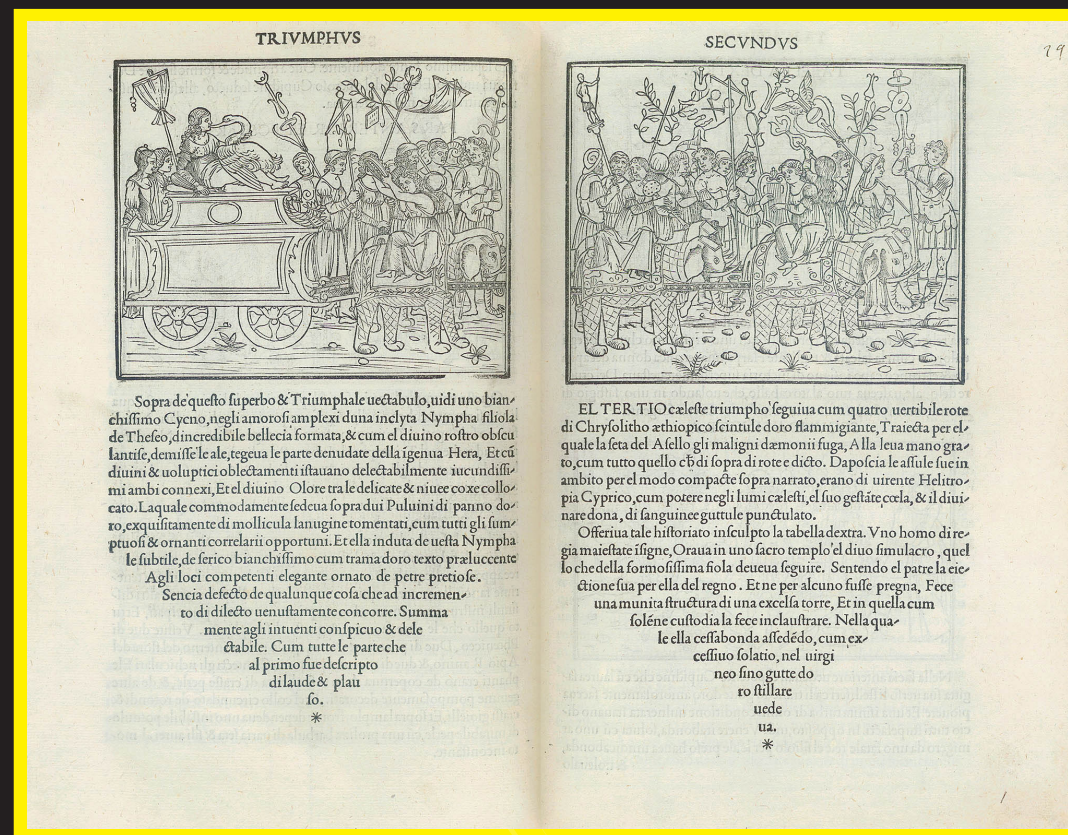 TRIVMPHVS
Sopra de questo superbo & Triumphale uectabulo, uidi uno bian-
chissimo Cycno, negli amorosi amplexi duna inclyta Nympha filiola
de Theseo, dincredibile bellecia formata, & cum el diuino rostro obscu
lantise, demisse le ale, tegeua le parte denudate della igenua Hera, Et cū
diuini & uoluptici oblectamenti istauano delectabilmente iucundissi-
mi ambi connexi, Et el diuino Olore tra le delicate & niuee coxe collo-
cato. Laquale commodamente sedeua sopra dui Puluini di panno do-
ro, exquisitamente di mollicula lanugine tomentati, cum tutti gli sum-
ptuosi & ornanti correlarii opportuni. Et ella induta de uesta Nympha
le subtile, de serico bianchissimo cum trama doro texto præluccente
Agli loci competenti elegante ornato de petre pretiose.
Sencia defecto de qualunque cosa che ad incremen-
to di dilecto uenustamente concorre. Summa
mente agli intuenti conspicuo & dele
ctabile. Cum tutte le parte che
al primo fue descripto
di laude & plau
so.
*
SECVNDVS
29
EL TERTIO cæleste triumpho seguiua cum quatro uertibile rote
di Chrysolitho æthiopico scintule doro flammigiante, Traiecta per el-
quale la seta del Asello gli maligni dæmonii fuga, Alla leua mano gra-
to, cum tutto quello ch̄ di sopra di rote e dicto. Daposcia le assule sue in
ambito per el modo compacte sopra narrato, erano di uirente Helitro-
pia Cyprico, cum potere negli lumi cælesti, el suo gestāte cœla, & il diui-
nare dona, di sanguinee guttule punctulato.
Offeriua tale historiato insculpto la tabella dextra. Vno homo di re-
gia maiestate isigne, Oraua in uno sacro templo el diuo simulacro, quel
lo che della formosissima fiola deueua seguire. Sentendo el patre la eie-
ctione sua per ella del regno. Et ne per alcuno fusse pregna, Fece
una munita structura di una excelsa torre, Et in quella cum
solēne custodia la fece inclaustrare. Nella qua-
le ella cessabonda assedēdo, cum ex-
cessiuo solatio, nel uirgi
neo sino gutte do
ro stillare
uede
ua.
*